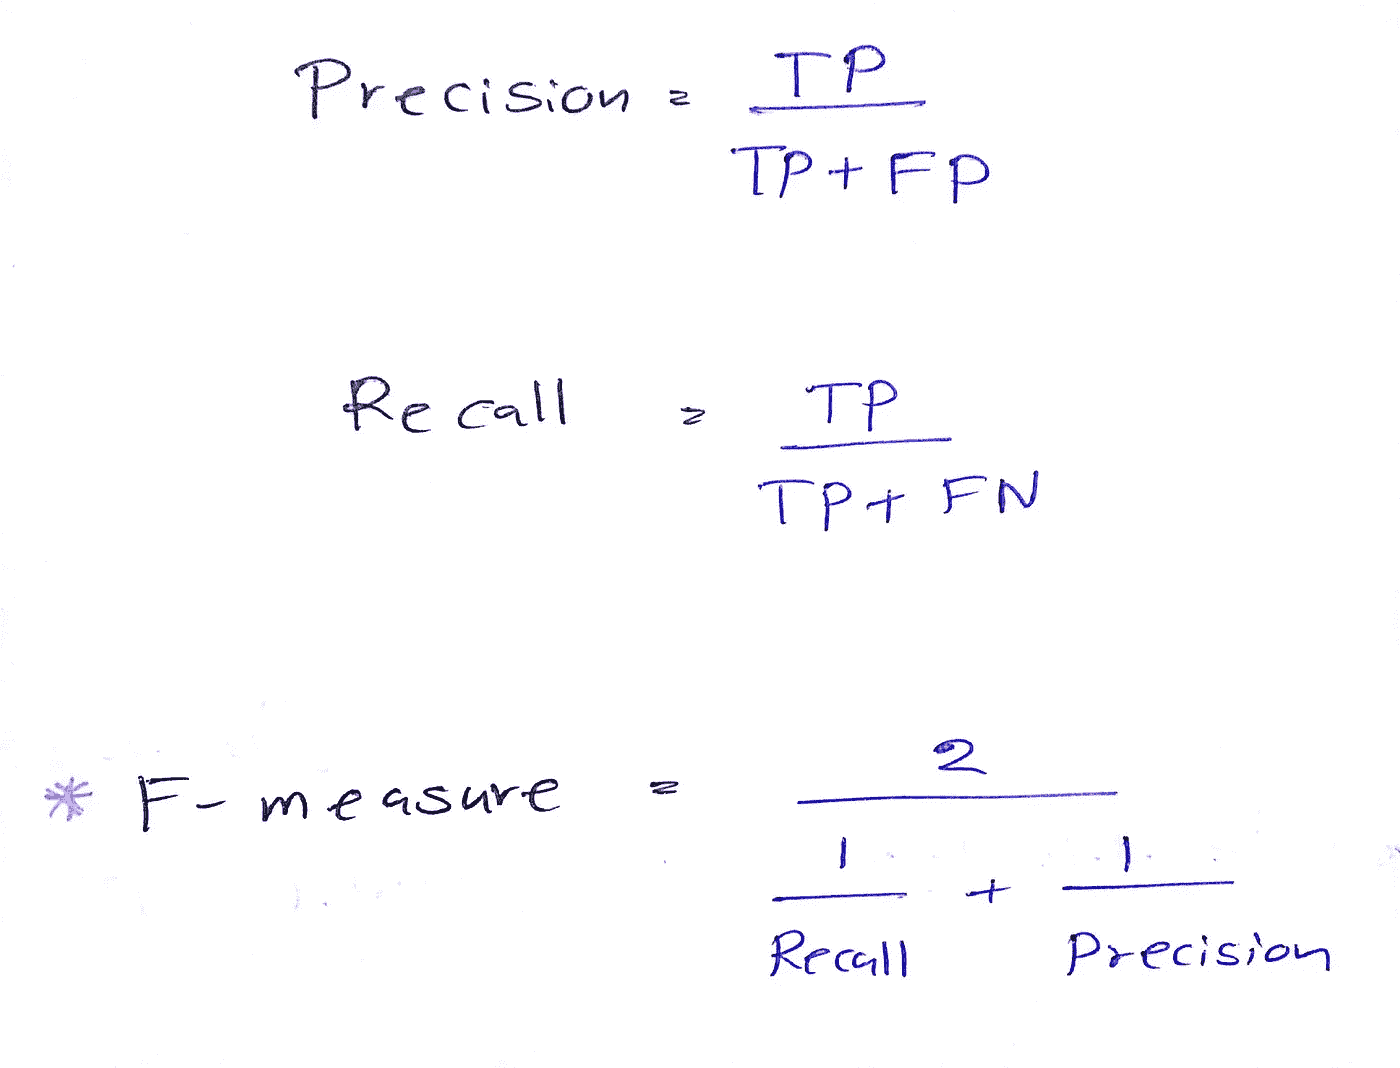 Precision = TP
TP + FP
Recall = TP
TP + FN
* F-measure = 2
1 + 1
Recall Precision